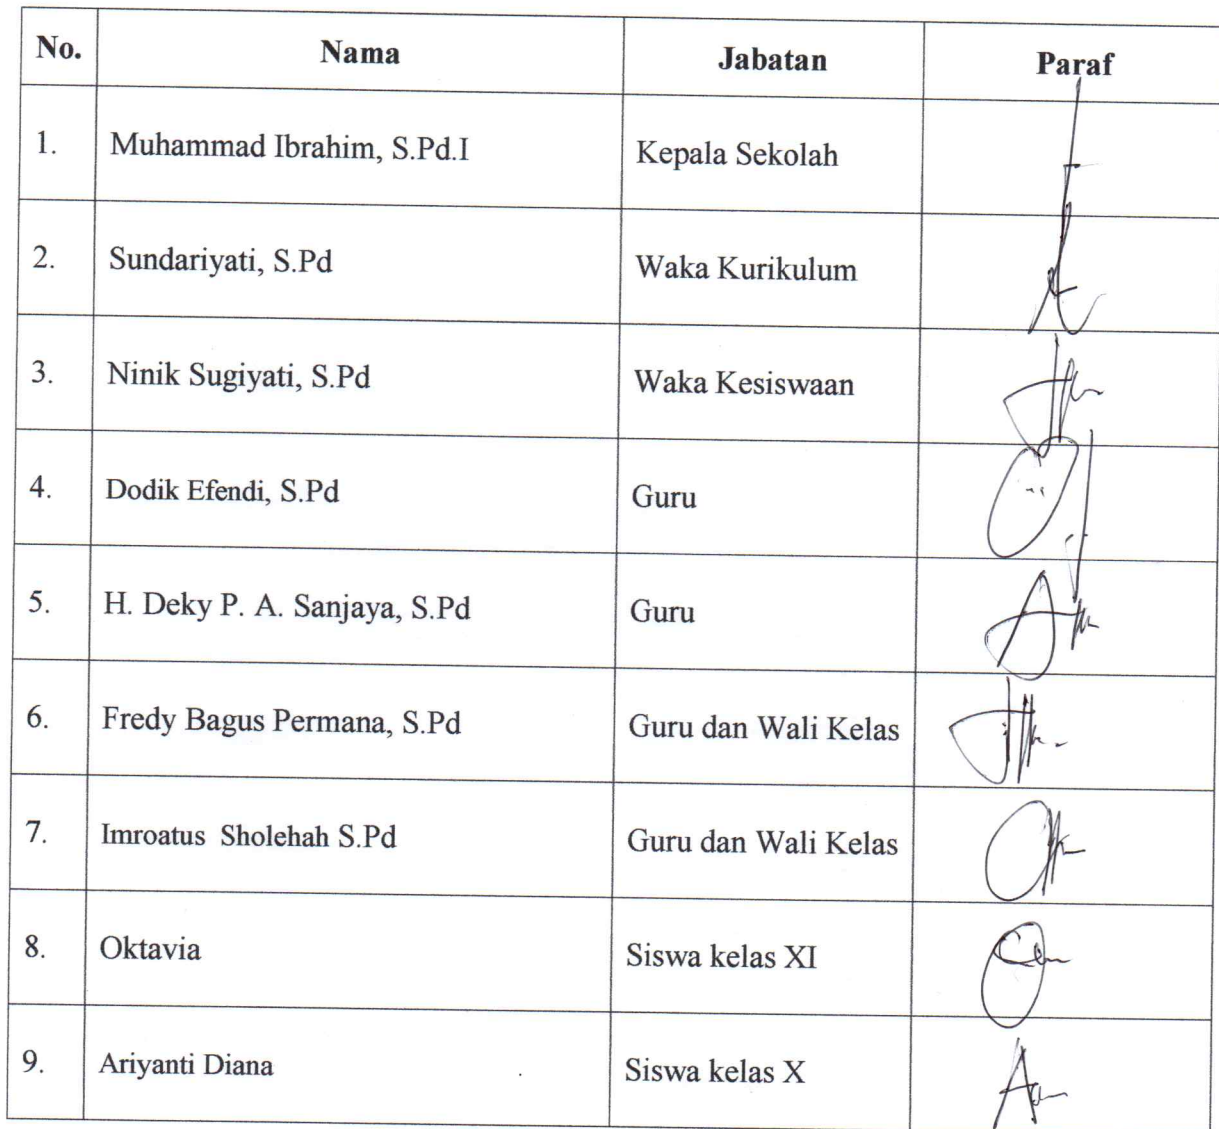 No. Nama Jabatan Paraf
1. Muhammad Ibrahim, S.Pd.I Kepala Sekolah
2. Sundariyati, S.Pd Waka Kurikulum
3. Ninik Sugiyati, S.Pd Waka Kesiswaan
4. Dodik Efendi, S.Pd Guru
5. H. Deky P. A. Sanjaya, S.Pd Guru
6. Fredy Bagus Permana, S.Pd Guru dan Wali Kelas
7. Imroatus Sholehah S.Pd Guru dan Wali Kelas
8. Oktavia Siswa kelas XI
9. Ariyanti Diana Siswa kelas X